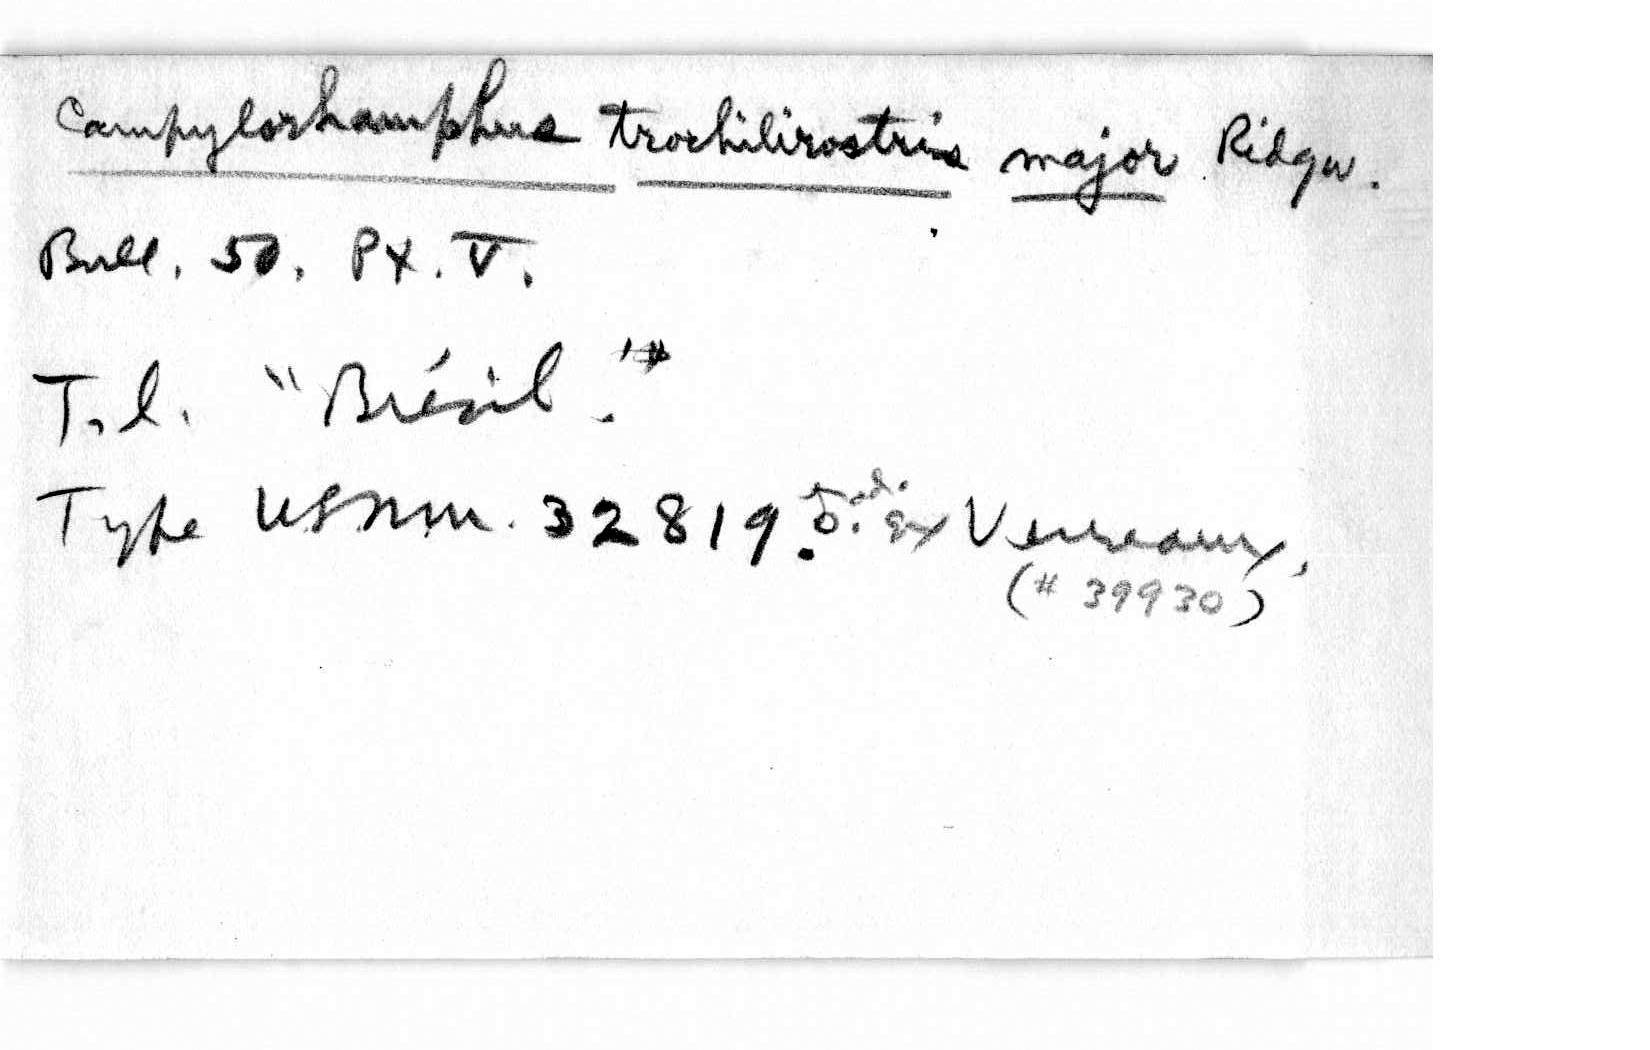 Campylorhamphus trochilirostris major Ridgw.
Bull. 50. Pt. V.
T.l. "Brésil."
Type USNM. 32819. ad. ex Verreaux,
(# 39930)